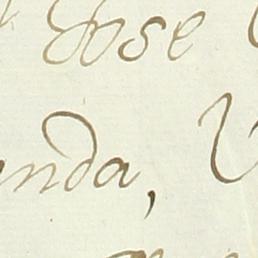 Jose
nda, V